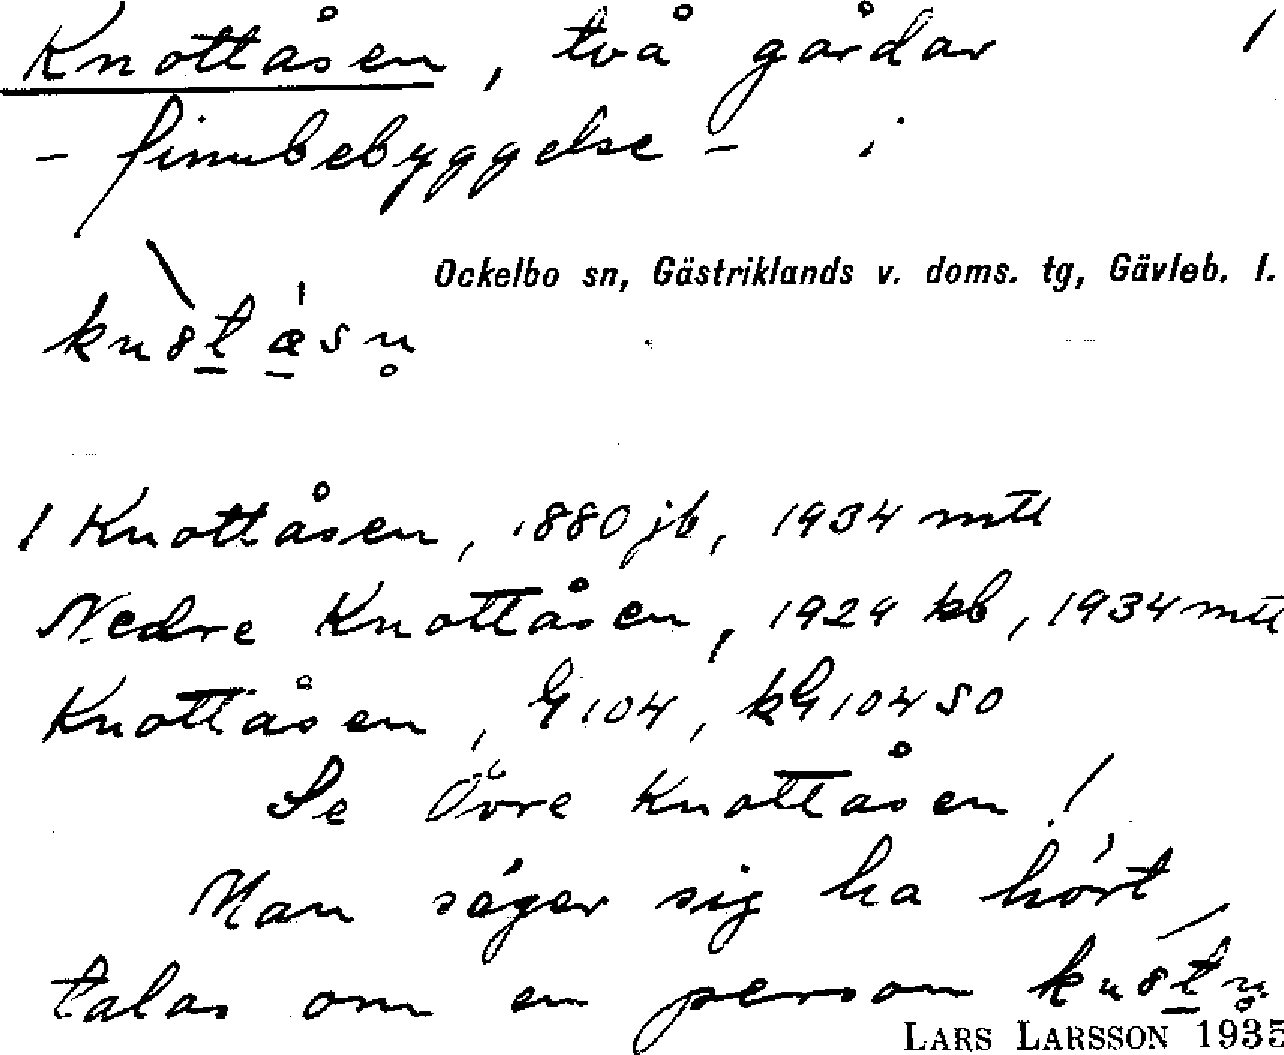 Knottåsen, två gårdar 1
– finnbebyggelse – i
Ockelbo sn, Gästriklands v. doms. tg, Gävleb. l.
1 Knottåsen, 1880 jb, 1934 mtl
Nedre Knottåsen, 1929 kb, 1934 mtl
Knottåsen, G 104, kG 104 SO
Se Övre Knottåsen!
Man säger sig ha hört
talas om en person
LARS LARSSON 1935